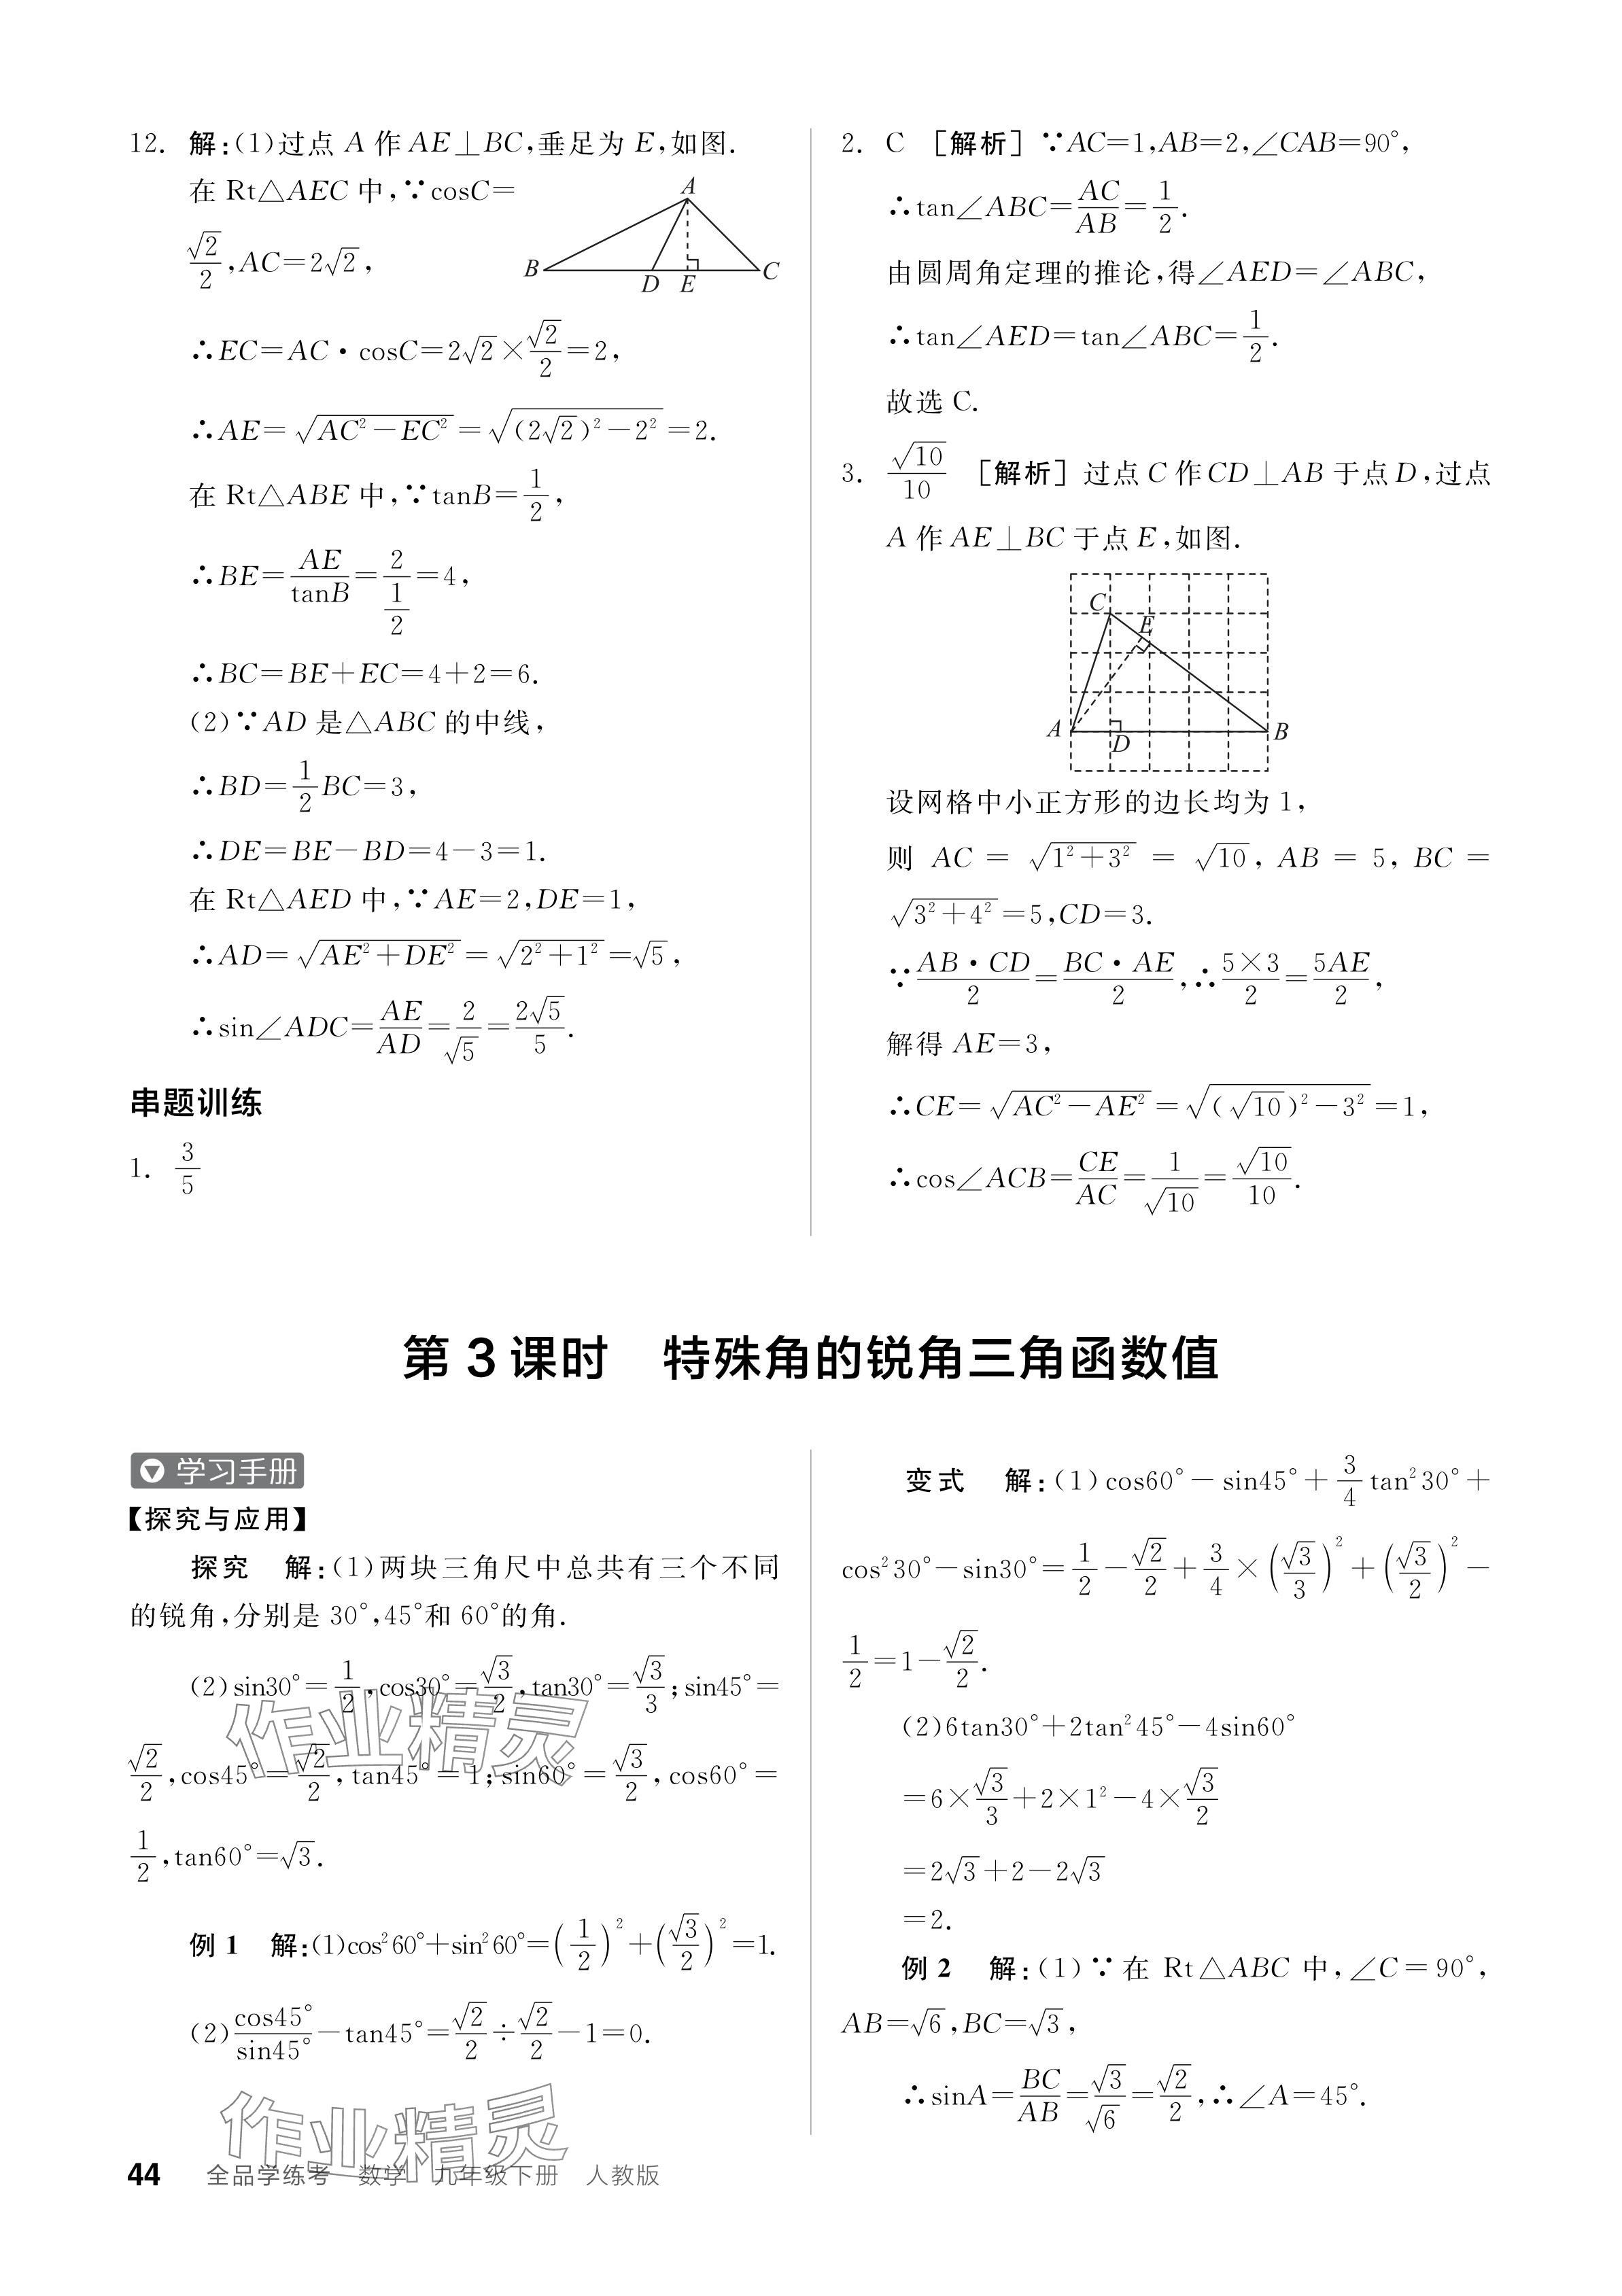 12. 解:(1)过点 A 作 AE⊥BC,垂足为 E,如图.
在 Rt△AEC 中,∵cosC=
√2/2,AC=2√2,
A
B
D E
C
∴EC=AC·cosC=2√2×√2/2=2,
∴AE=√(AC²-EC²)=√((2√2)²-2²)=2.
在 Rt△ABE 中,∵tanB=1/2,
∴BE=AE/tanB=2/(1/2)=4,
∴BC=BE+EC=4+2=6.
(2)∵AD 是△ABC 的中线,
∴BD=1/2BC=3,
∴DE=BE-BD=4-3=1.
在 Rt△AED 中,∵AE=2,DE=1,
∴AD=√(AE²+DE²)=√(2²+1²)=√5,
∴sin∠ADC=AE/AD=2/√5=2√5/5.
串题训练
1. 3/5
2. C [解析] ∵AC=1,AB=2,∠CAB=90°,
∴tan∠ABC=AC/AB=1/2.
由圆周角定理的推论,得∠AED=∠ABC,
∴tan∠AED=tan∠ABC=1/2.
故选 C.
3. √10/10 [解析] 过点 C 作 CD⊥AB 于点 D,过点
A 作 AE⊥BC 于点 E,如图.
C
E
A
D
B
设网格中小正方形的边长均为 1,
则 AC = √(1²+3²) = √10, AB = 5, BC =
√(3²+4²)=5,CD=3.
∵AB·CD/2=BC·AE/2,∴5×3/2=5AE/2,
解得 AE=3,
∴CE=√(AC²-AE²)=√((√10)²-3²)=1,
∴cos∠ACB=CE/AC=1/√10=√10/10.
第 3 课时 特殊角的锐角三角函数值
学习手册
【探究与应用】
探究 解:(1)两块三角尺中总共有三个不同
的锐角,分别是 30°,45°和 60°的角.
(2)sin30°=1/2,cos30°=√3/2,tan30°=√3/3;sin45°=
√2/2,cos45°=√2/2,tan45°=1;sin60°=√3/2,cos60°=
1/2,tan60°=√3.
例 1 解:(1)cos²60°+sin²60°=(1/2)²+(√3/2)²=1.
(2)cos45°/sin45°-tan45°=√2/2÷√2/2-1=0.
变式 解:(1)cos60°-sin45°+3/4tan²30°+
cos²30°-sin30°=1/2-√2/2+3/4×(√3/3)²+(√3/2)²-
1/2=1-√2/2.
(2)6tan30°+2tan²45°-4sin60°
=6×√3/3+2×1²-4×√3/2
=2√3+2-2√3
=2.
例 2 解:(1)∵在 Rt△ABC 中,∠C=90°,
AB=√6,BC=√3,
∴sinA=BC/AB=√3/√6=√2/2,∴∠A=45°.
作业精灵
作业精灵
44 全品学练考 数学 九年级下册 人教版